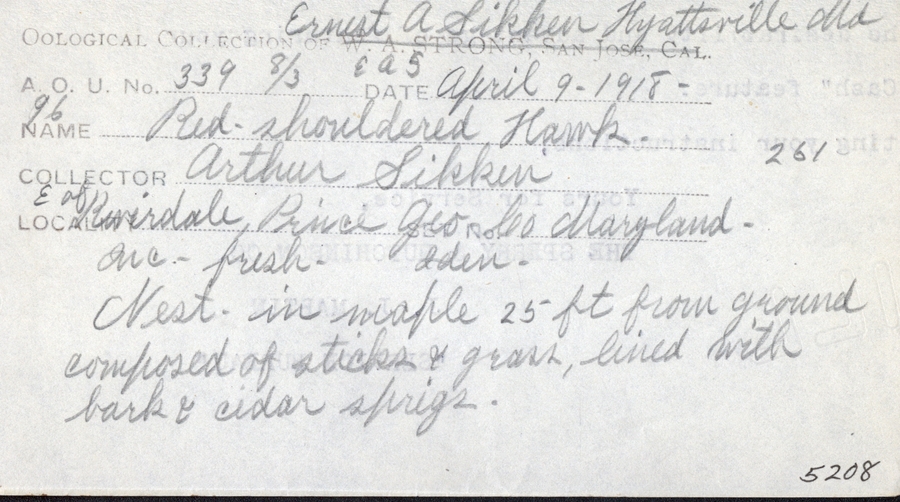 Ernest A Sikken Hyattsville Md
OOLOGICAL COLLECTION OF W. A. STRONG, SAN JOSE, CAL.
A. O. U. No. 339 8/3 EA5 DATE April 9-1918-
96
NAME Red-shouldered Hawk.
261
COLLECTOR Arthur Sikken
E of
LOCALITY Riverdale, Prince Geo. Co Maryland-
SET No.
Inc- fresh- Iden-
Nest- in maple 25 ft from ground
composed of sticks & grass, lined with
bark & cidar sprigs.
5208